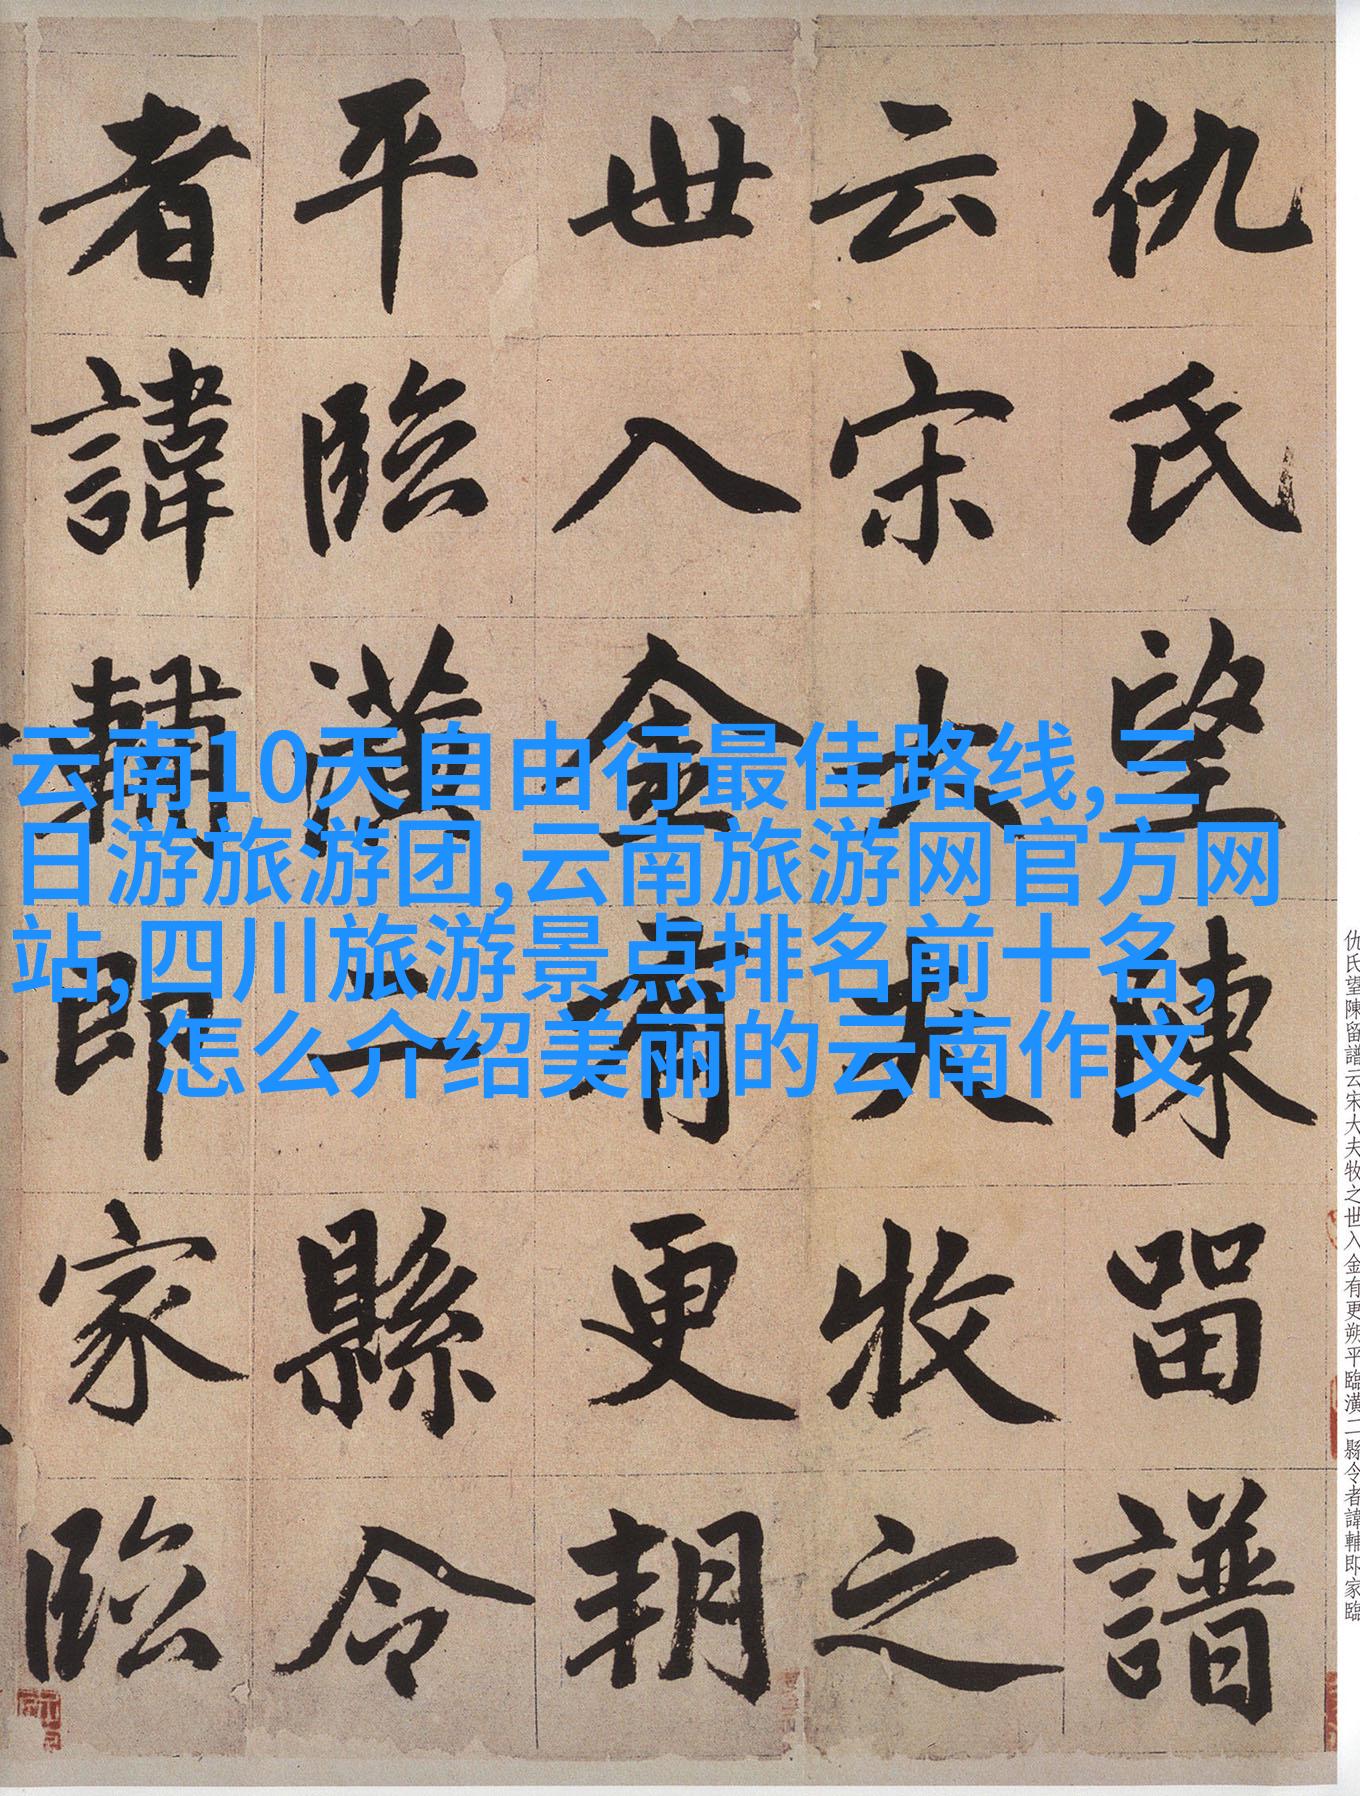 云南10天自由行最佳路线,三
日游旅游团,云南旅游网官方网
站,四川旅游景点排名前十名,
怎么介绍美丽的云南作文
仇氏望陳留譜
云宋大夫牧之
世入金有更朔
平臨潢二縣令
者諱輔即家臨
仇氏望陳留譜云宋大夫牧之世入金有更朔平臨潢二縣令者諱輔即家臨